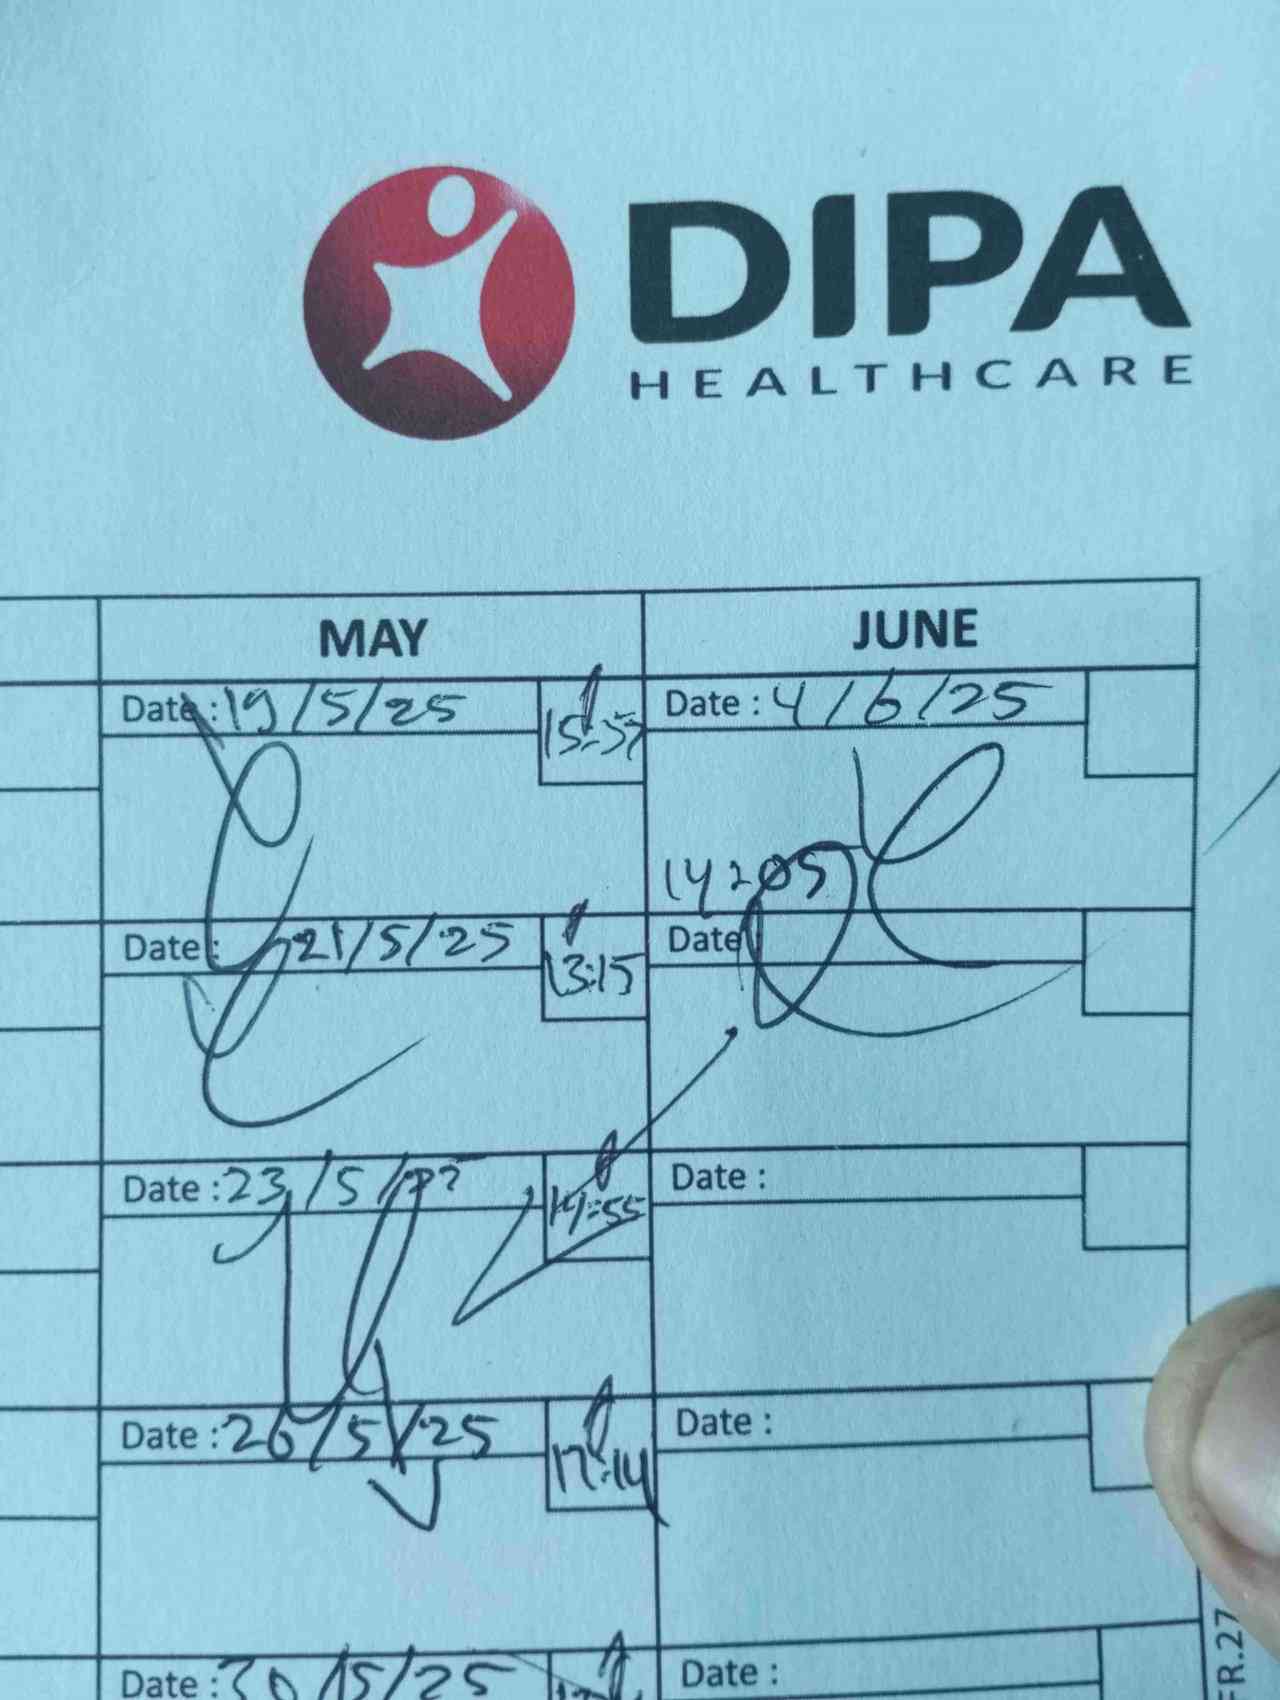 DIPA
HEALTHCARE
MAY
JUNE
Date : 19/5/25
15:57
Date : 4/6/25
14:05
Date : 21/5/25
13:15
Date :
Date : 23/5/
14:55
Date :
Date : 26/5/25
17:14
Date :
Date : 30/5/25
Date :
FR.27